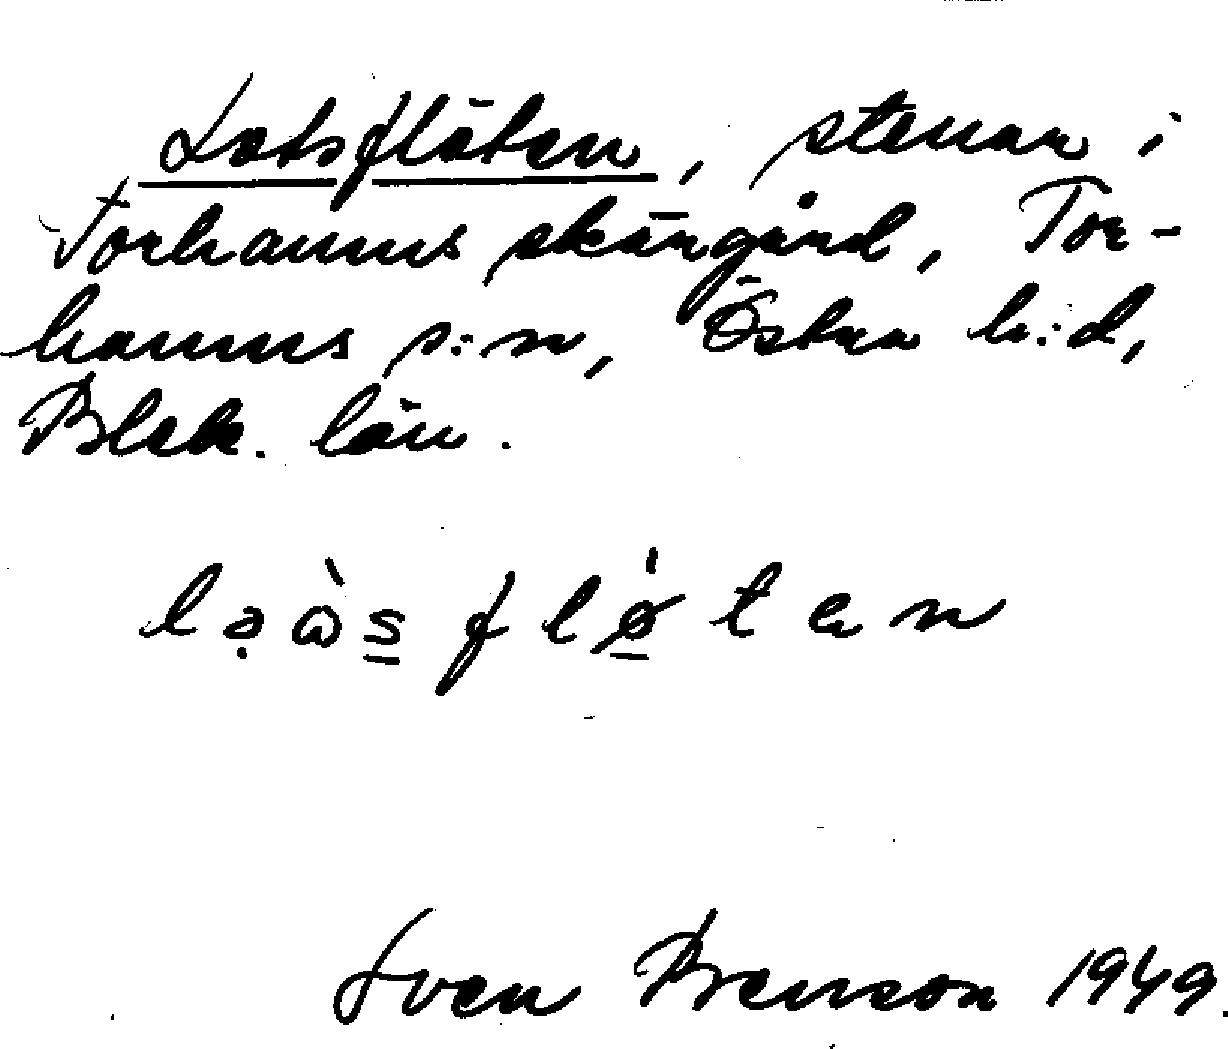 Lotsflöten, stenar i
Torhamns skärgård, Tor-
hamns s:n, Östra h:d,
Blek. län.
Sven Benson 1949.